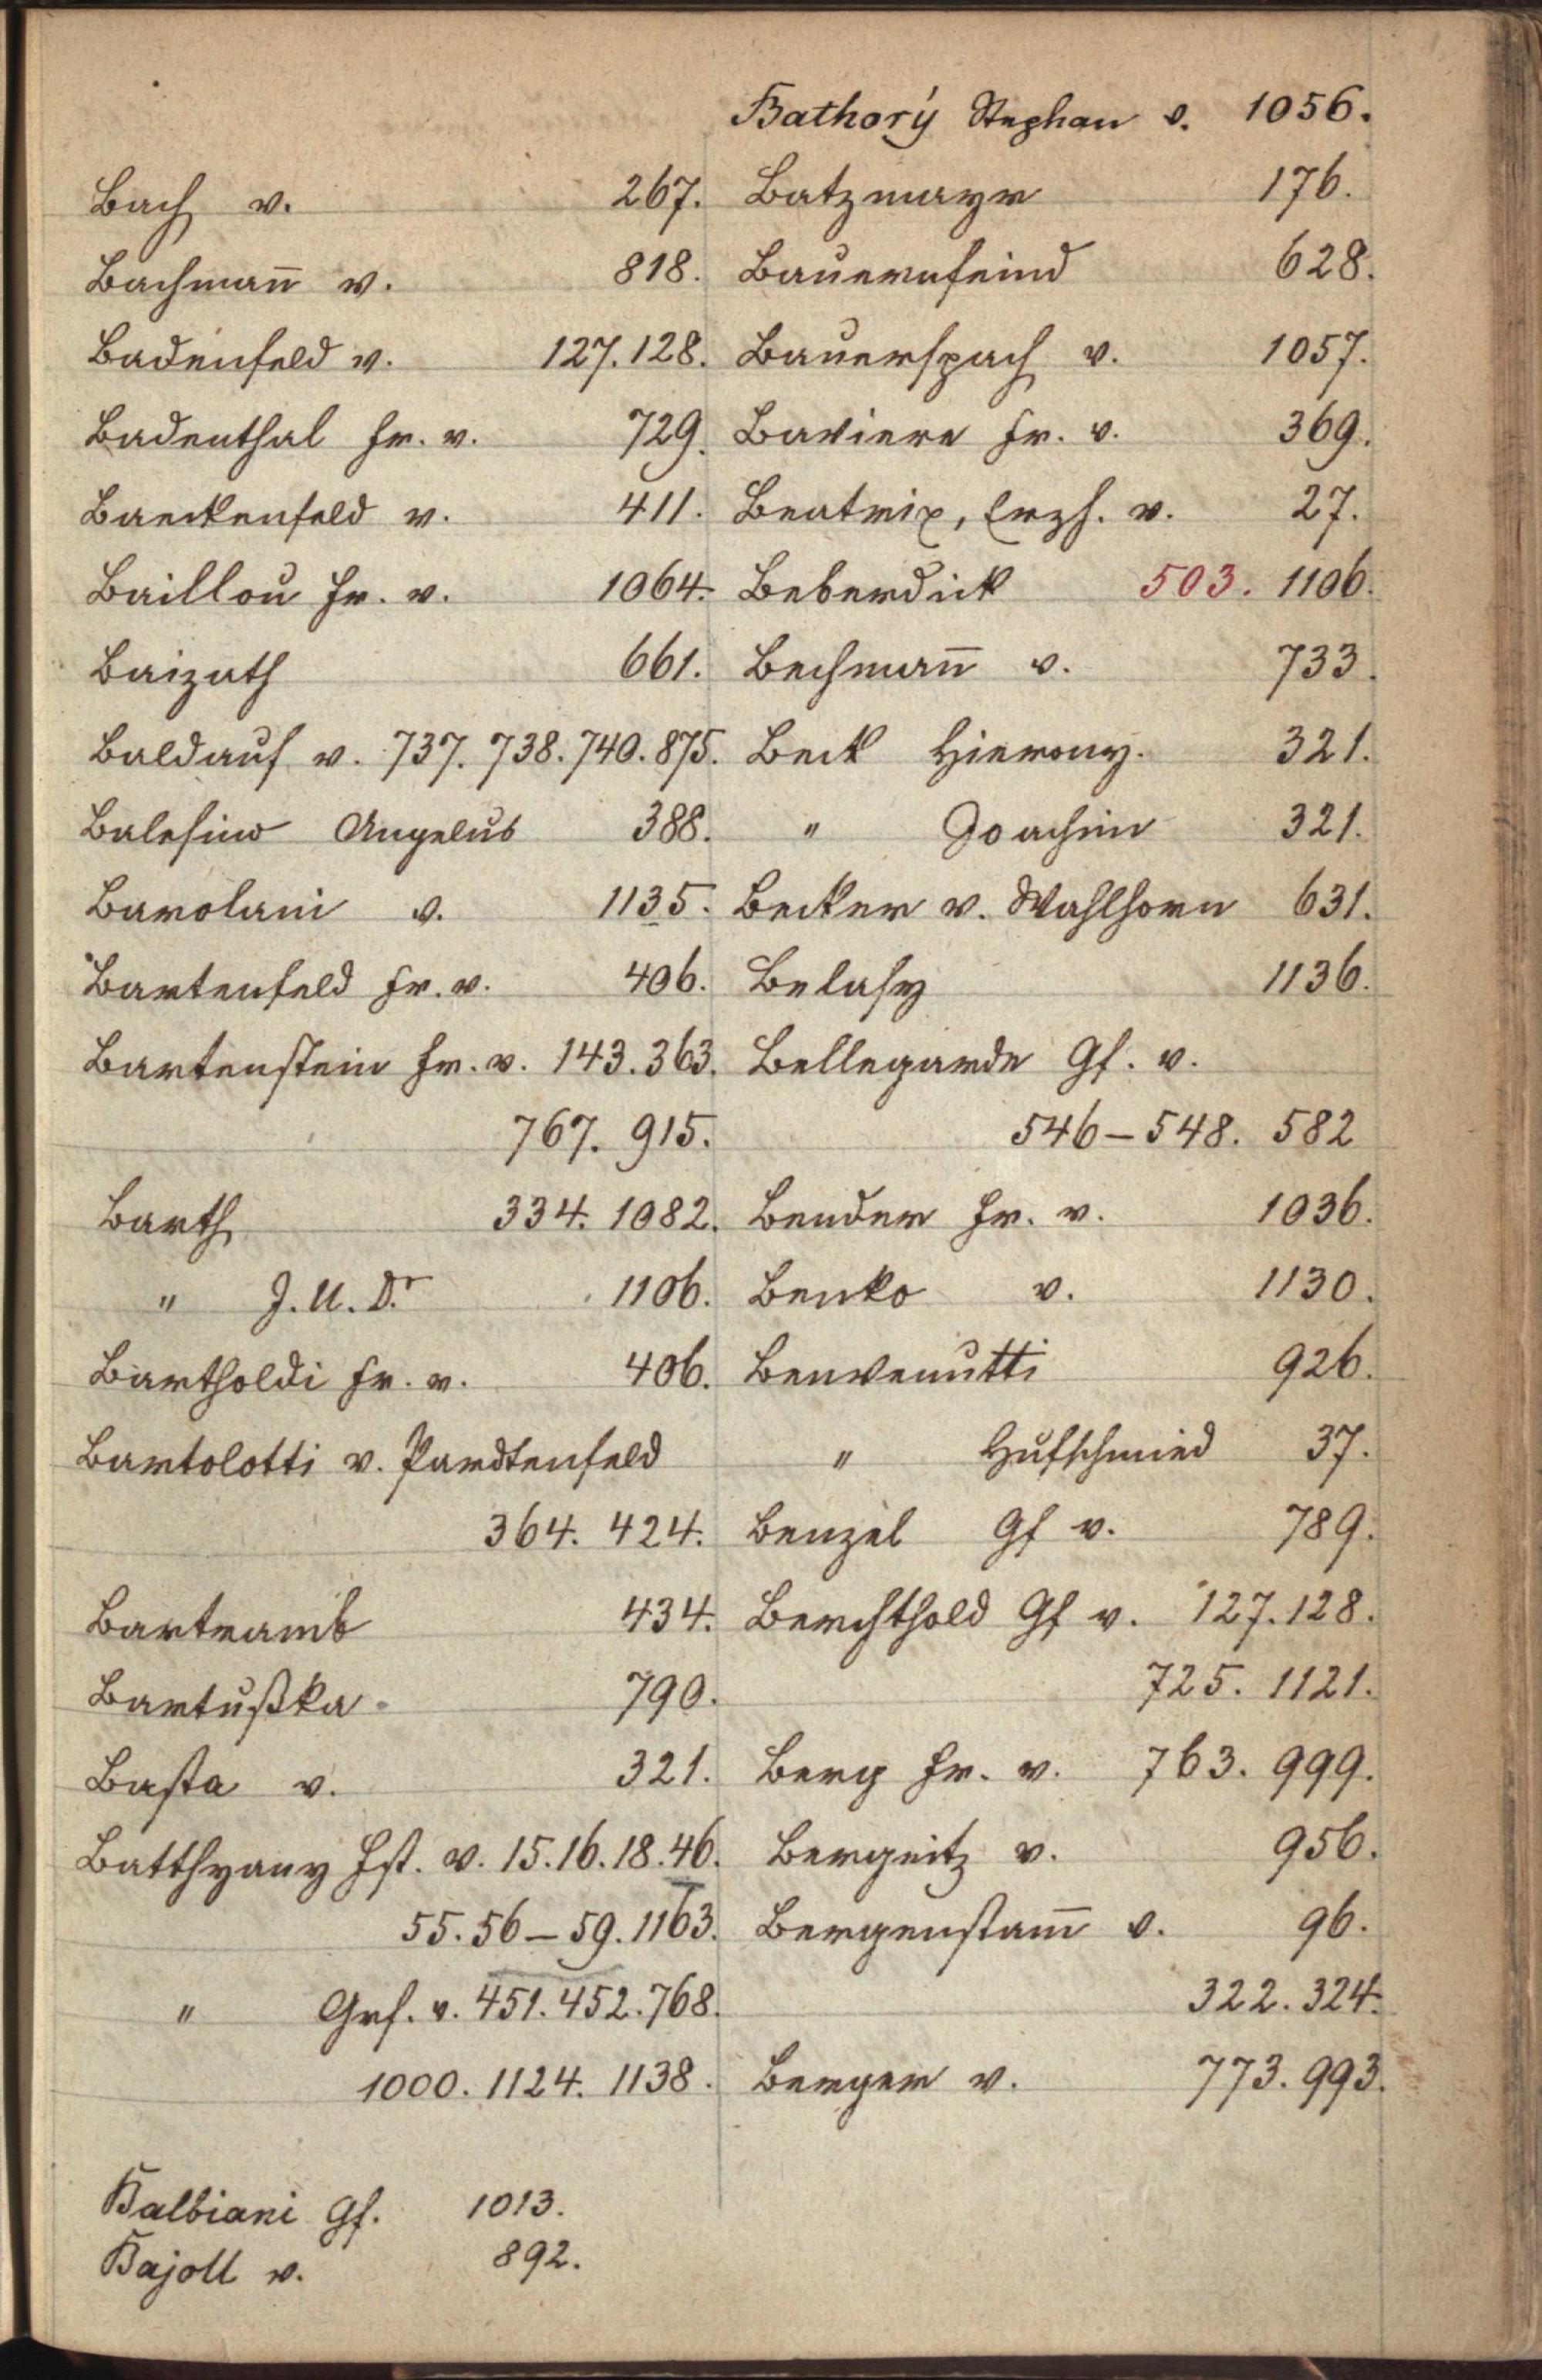 Bach v. 267.
Bachmann̄ v. 818.
Badenfeld v. 127. 128.
Badenthal Fr. v. 729.
Baeckenfeld v. 411.
Baillou Fr. v. 1064.
Baizath 661.
Baldauf v. 737. 738. 740. 875.
Balesino Angelus 388.
Barolani v. 1135.
Bartenfeld Fr. v. 406.
Bartenstein Fr. v. 143. 363.
767. 915.
Barth 334. 1082.
" J. U. Dr. 1106.
Bartholdi Fr. v. 406.
Bartolotti v. Pardtenfeld
364. 424.
Bartramb 434.
Bartußka 790.
Basta v. 321.
Batthyany Fst. v. 15. 16. 18. 46.
55. 56 – 59. 1163.
" Grf. v. 451. 452. 768.
1000. 1124. 1138.
Balbiani Gf. 1013.
Bajoll v. 892.
Bathorý Stephan v. 1056.
Batzmayr 176.
Bauernfeind 628.
Bauerspach v. 1057.
Baviere Fr. v. 369.
Beatrix, Erzh. v. 27.
Beberdick 503. 1106.
Bechman̄ v. 733.
Beck Hierony. 321.
" Joachim 321.
Becker v. Wahlhorn 631.
Belasy 1136.
Bellegarde Gf. v.
546 – 548. 582
Bender Fr. v. 1036.
Benko v. 1130.
Benvenutti 926.
" Hufschmied 37.
Benzel Gf v. 789.
Berchthold Gf v. 127. 128.
725. 1121.
Berg Fr. v. 763. 999.
Bergeitz v. 956.
Bergenstam̄ v. 96.
322. 324.
Berger v. 773. 993.